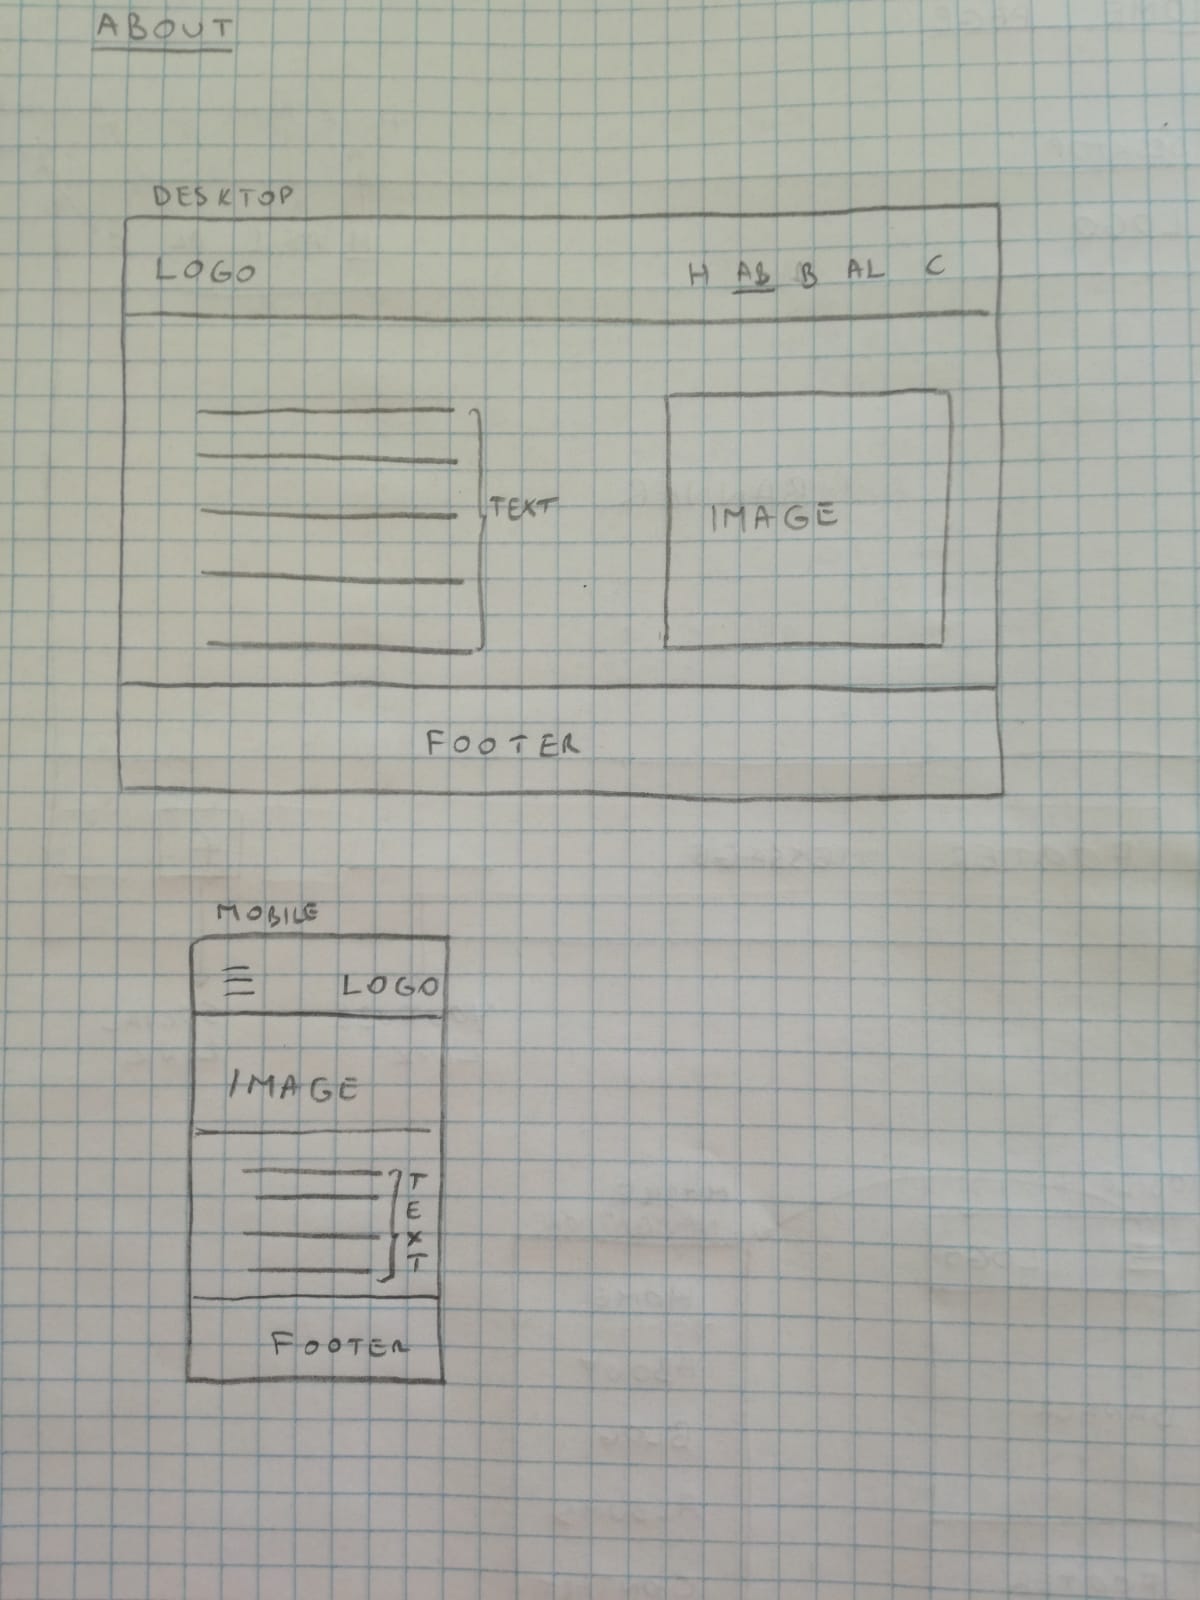 ABOUT
DESKTOP
LOGO H AB B AL C
TEXT
IMAGE
FOOTER
MOBILE
LOGO
IMAGE
T
E
X
T
FOOTER